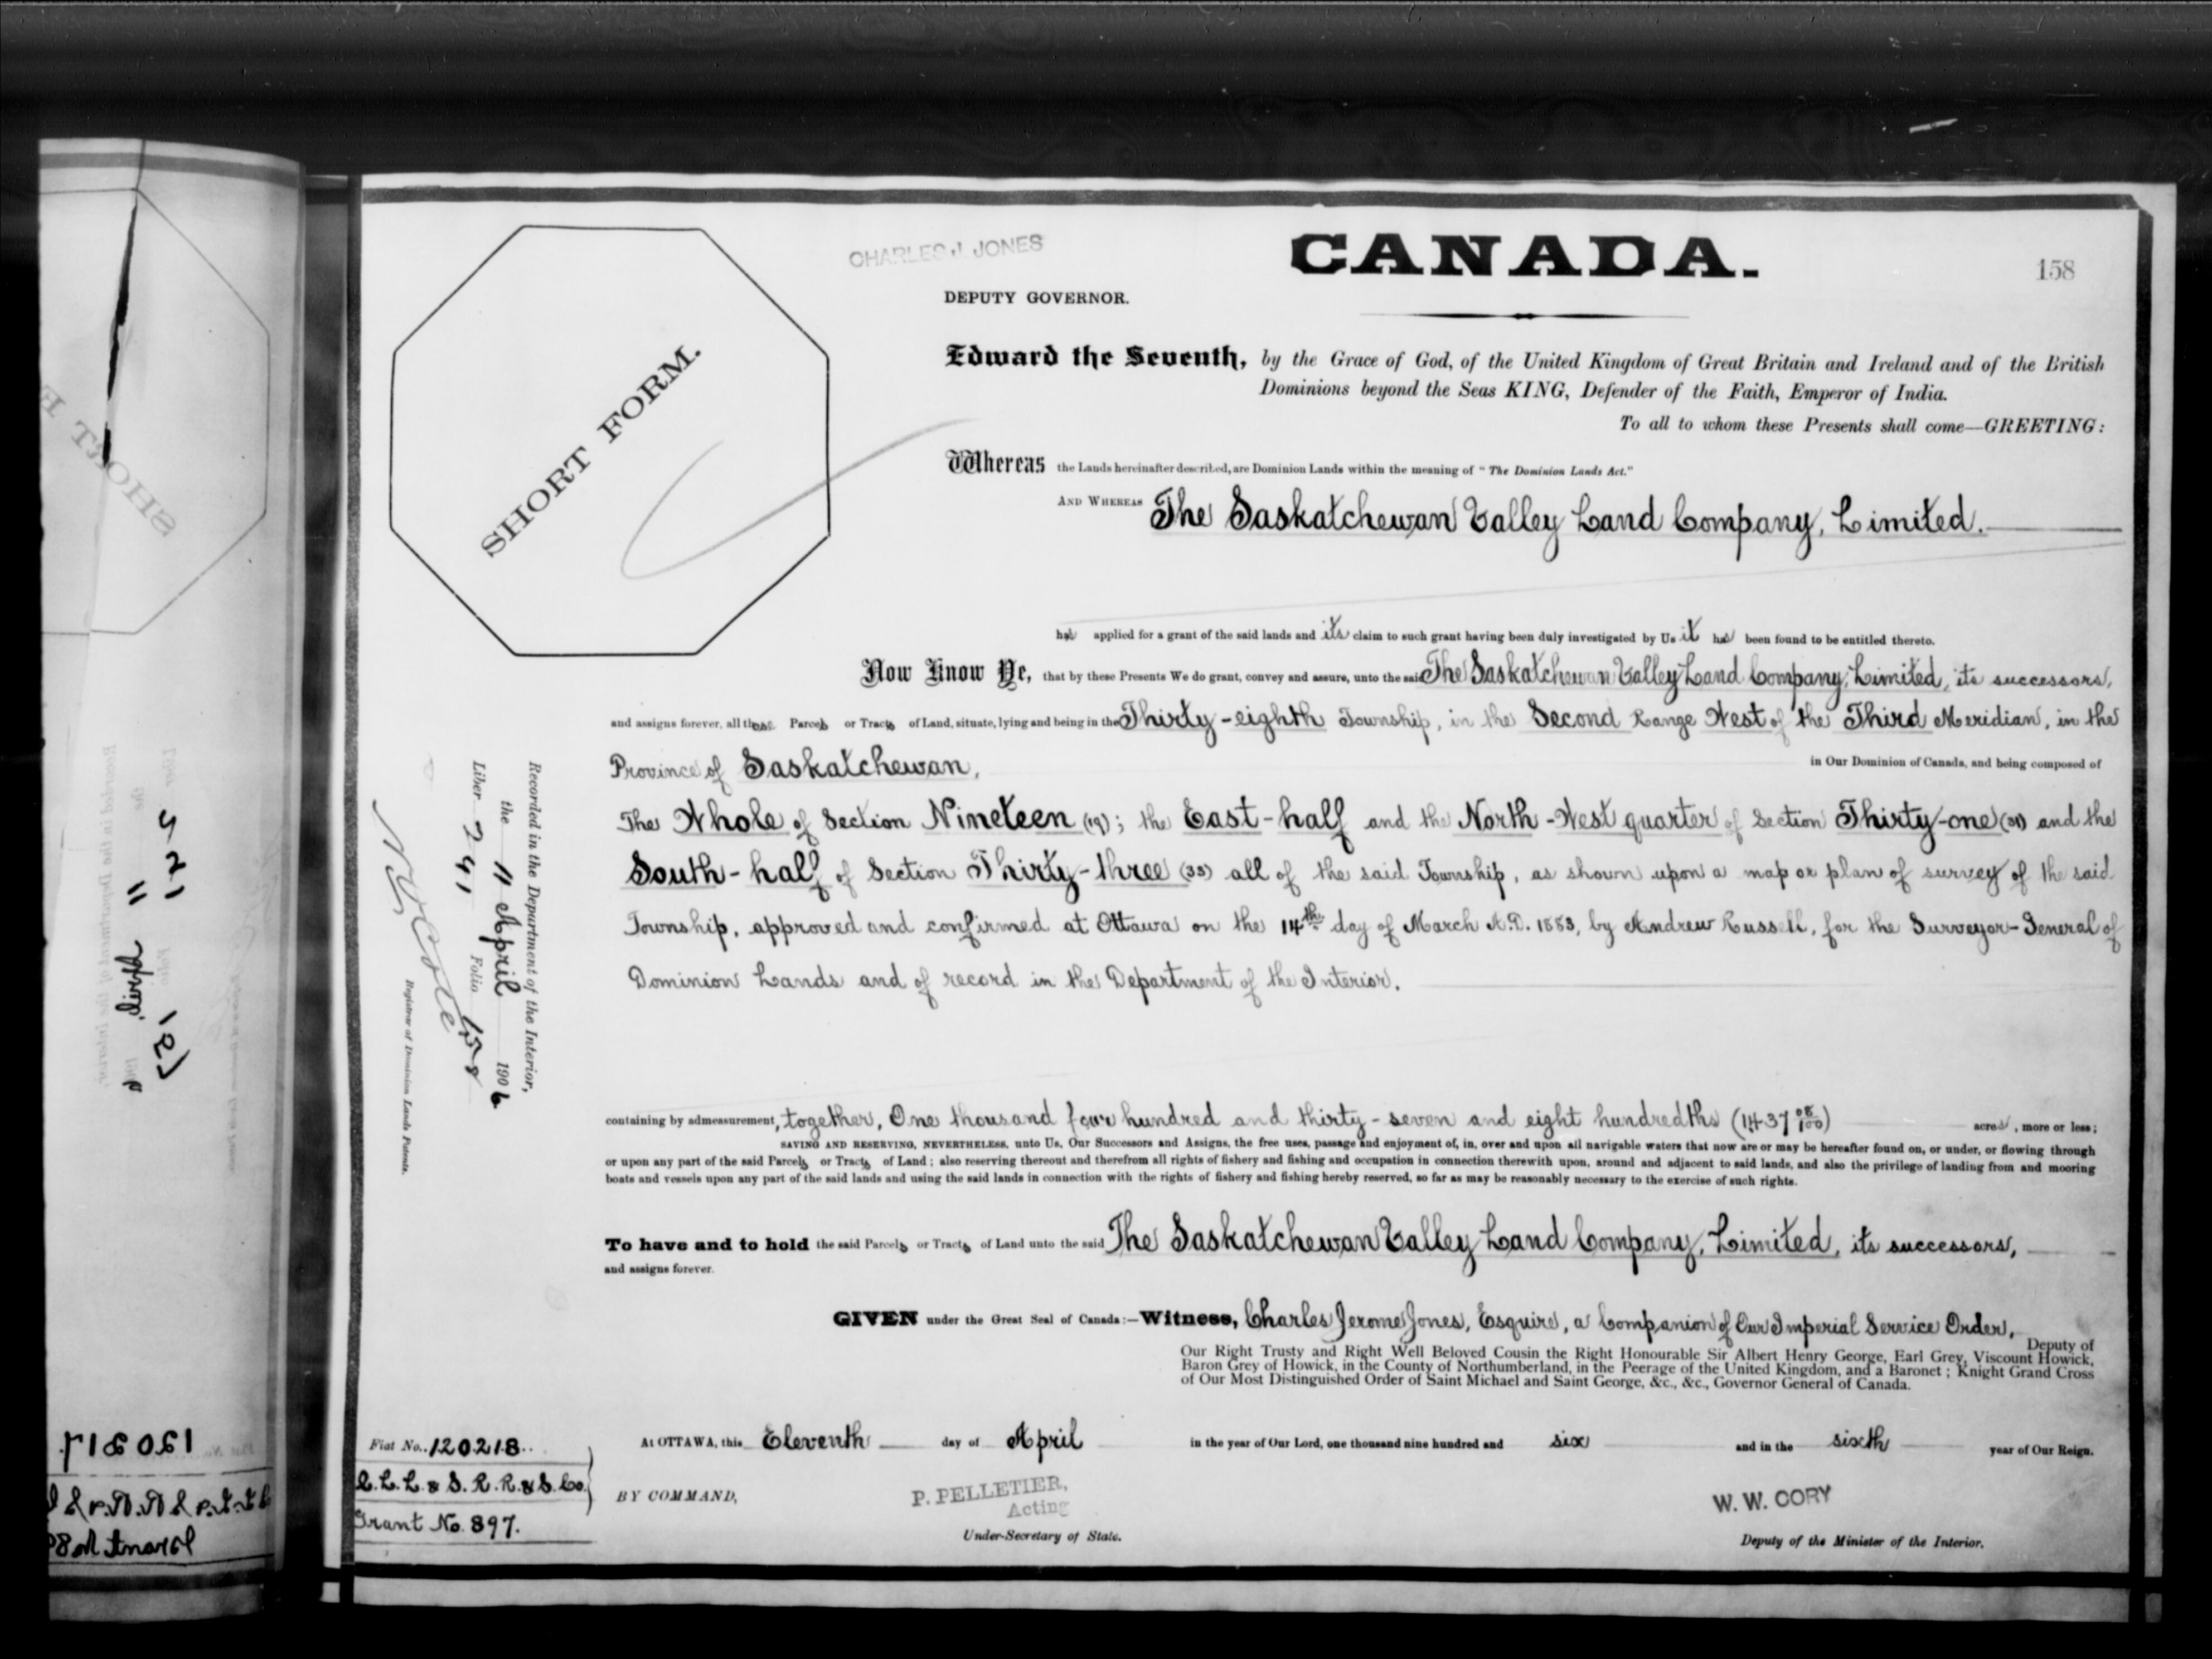 CHARLES J. JONES
CANADA.
158
DEPUTY GOVERNOR.
SHORT FORM.
Edward the Seventh, by the Grace of God, of the United Kingdom of Great Britain and Ireland and of the British
Dominions beyond the Seas KING, Defender of the Faith, Emperor of India.
To all to whom these Presents shall come—GREETING:
Whereas the Lands hereinafter described, are Dominion Lands within the meaning of "The Dominion Lands Act."
AND WHEREAS The Saskatchewan Valley Land Company, Limited.
has applied for a grant of the said lands and its claim to such grant having been duly investigated by Us it has been found to be entitled thereto.
Now Know Ye, that by these Presents We do grant, convey and assure, unto the said The Saskatchewan Valley Land Company, Limited, its successors,
and assigns forever, all those Parcels or Tracts of Land, situate, lying and being in the Thirty-eighth Township, in the Second Range West of the Third Meridian, in the
Province of Saskatchewan, in Our Dominion of Canada, and being composed of
The Whole of Section Nineteen (19); the East-half and the North-West quarter of Section Thirty-one (31) and the
South-half of Section Thirty-three (33) all of the said Township, as shown upon a map or plan of survey of the said
Township, approved and confirmed at Ottawa on the 14th day of March A.D. 1883, by Andrew Russell, for the Surveyor-General of
Dominion Lands and of record in the Department of the Interior.
containing by admeasurement, together, One thousand four hundred and thirty-seven and eight hundredths (1437 08/100) acres, more or less;
SAVING AND RESERVING, NEVERTHELESS, unto Us, Our Successors and Assigns, the free uses, passage and enjoyment of, in, over and upon all navigable waters that now are or may be hereafter found on, or under, or flowing through
or upon any part of the said Parcels or Tracts of Land; also reserving thereout and therefrom all rights of fishery and fishing and occupation in connection therewith upon, around and adjacent to said lands, and also the privilege of landing from and mooring
boats and vessels upon any part of the said lands and using the said lands in connection with the rights of fishery and fishing hereby reserved, so far as may be reasonably necessary to the exercise of such rights.
To have and to hold the said Parcels or Tracts of Land unto the said The Saskatchewan Valley Land Company, Limited, its successors,
and assigns forever.
GIVEN under the Great Seal of Canada:—Witness, Charles Jerome Jones, Esquire, a Companion of Our Imperial Service Order,
Deputy of
Our Right Trusty and Right Well Beloved Cousin the Right Honourable Sir Albert Henry George, Earl Grey, Viscount Howick,
Baron Grey of Howick, in the County of Northumberland, in the Peerage of the United Kingdom, and a Baronet; Knight Grand Cross
of Our Most Distinguished Order of Saint Michael and Saint George, &c., &c., Governor General of Canada.
At OTTAWA, this Eleventh day of April in the year of Our Lord, one thousand nine hundred and six and in the sixth year of Our Reign.
BY COMMAND,
P. PELLETIER,
Acting
Under-Secretary of State.
W. W. CORY
Deputy of the Minister of the Interior.
Recorded in the Department of the Interior,
the 11 April 1906
Liber 241 Folio 158
Registrar of Dominion Lands Patents.
Fiat No. 120218.
Q.L.L. & S. R.R. & S. Co.
Grant No. 897.